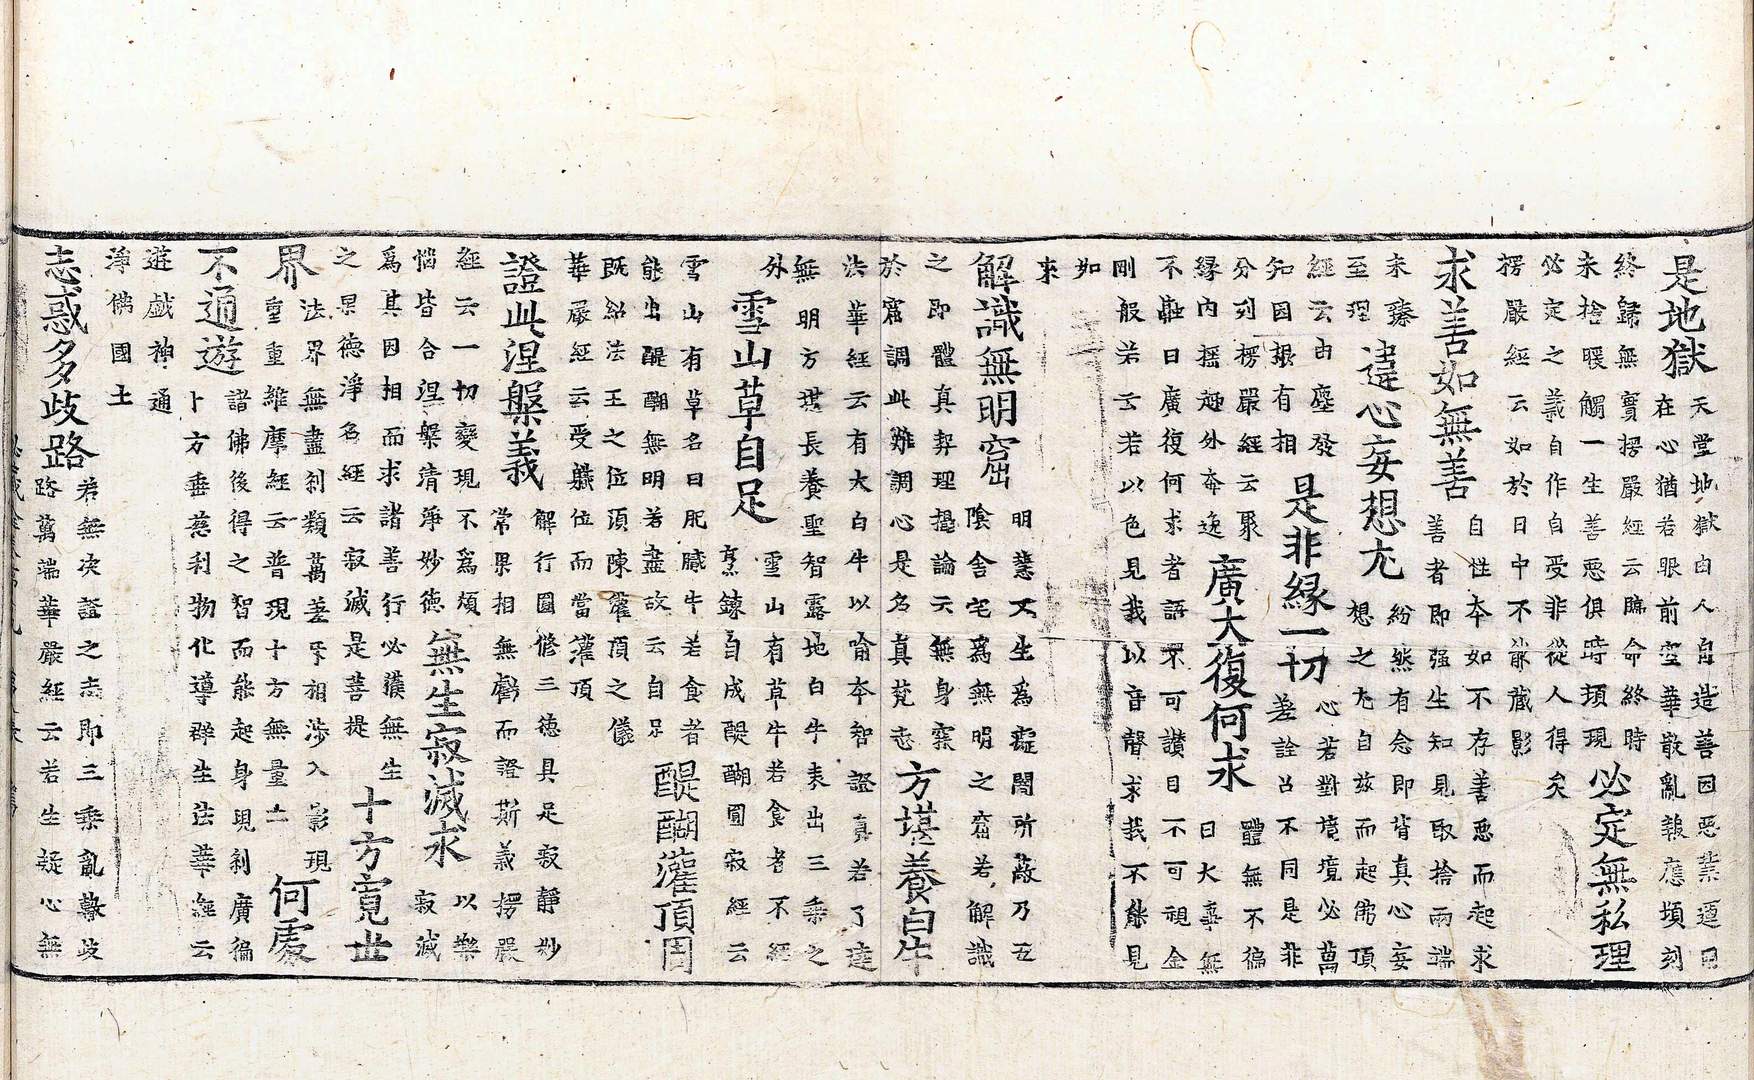 是地獄
天堂地獄由人自造善因惡業還因
在心猶若眼前空華散亂報應頃刻
終歸無實楞嚴經云臨命終時
未捨暖觸一生善惡俱時頓現
必定無私理
必定之義自作自受非從人得矣
楞嚴經云如於日中不能藏影
求善如無善
自性本如不存善惡而起求
善者即强生知見取捨兩端
未臻
至理
違心妄想尤
紛然有念即背真心妄
想之尤自茲而起佛頂
經云由塵發
知因根有相
是非緣一切
心若對境境必萬
差詮名不同是非
分列楞嚴經云聚
緣內搖趣外奔逸
廣大復何求
體無不徧
曰大事無
不融曰廣復何求者語不可讚目不可視金
剛般若云若以色見我以音聲求我不能見
如
來
解識無明窟
明慧不生爲癡闇所蔽乃五
陰舍宅爲無明之窟若解識
之即體真契理提論云無身窠
於窟調此難調心是名真梵志
方堪養白牛
法華經云有大白牛以喻本智證真若了達
無明方堪長養聖智露地白牛表出三乘之
外
雪山草自足
雪山有草牛若食者不經
烹鍊自成醍醐圓寂經云
雪山有草名曰肥膩牛若食者
能出醍醐無明若盡故云自足
醍醐灌頂因
既紹法王之位須陳灌頂之儀
華嚴經云受職位而當灌頂
證此涅槃義
解行圓修三德具足寂靜妙
常果相無虧而證斯義楞嚴
經云一切變現不爲煩
惱皆合涅槃清淨妙德
無生寂滅求
以樂
寂滅
爲其因相而求諸善行必獲無生
之果德淨名經云寂滅是菩提
十方寬世
界
法界無盡刹類萬差相涉入影現
重重維摩經云普現十方無量土
何處
不通遊
諸佛後得之智而能起身現刹廣徧
十方垂慈利物化導群生法華經云
遊戲神通
淨佛國土
志惑多歧路
若無決證之志即三乘亂轍歧
路萬端華嚴經云若生疑心無